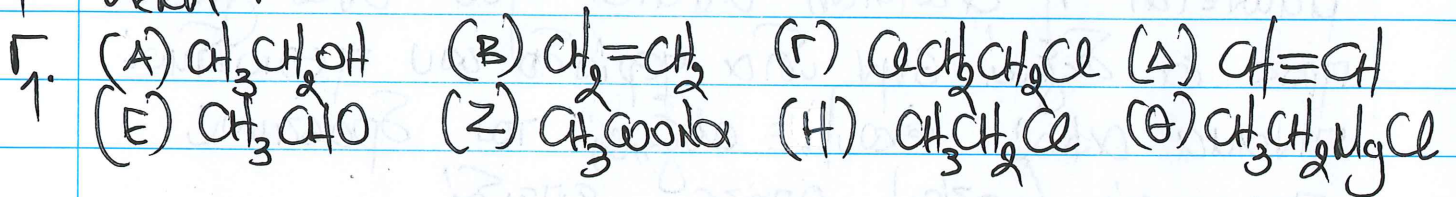 Γ1. (A) CH₃CH₂OH (B) CH₂=CH₂ (Γ) ClCH₂CH₂Cl (Δ) CH≡CH
(E) CH₃CHO (Z) CH₃COONa (H) CH₃CH₂Cl (Θ) CH₃CH₂MgCl